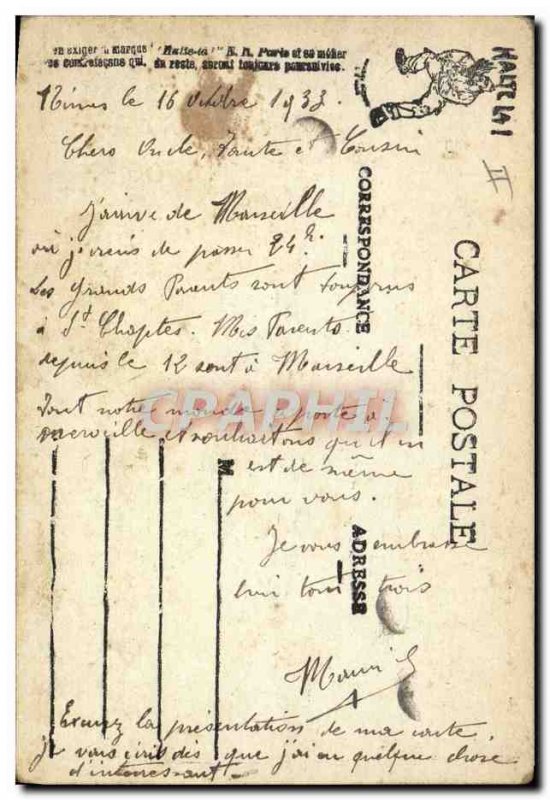 en exiger la marque "Halte-là" E. R. Paris et se méfier
des contrefaçons qui, du reste, seront toujours poursuivies.
HALTE LA !
II
CARTE POSTALE
CORRESPONDANCE
ADRESSE
M
Nimes le 16 octobre 1933.
Chers Oncle, Tante et Cousin
J'arrive de Marseille
où je viens de passer 24h.
Les Grands Parents sont toujours
à St Chaptes. Mes Parents
depuis le 12 sont à Marseille
Tout notre monde se porte à
merveille et souhaitons qu'il en
est de même
pour vous.
Je vous embrasse
bien tous trois
Maurice
Excusez la présentation de ma carte,
je vous écris dès que j'ai eu quelque chose
d'intéressant.
CPAPHIL